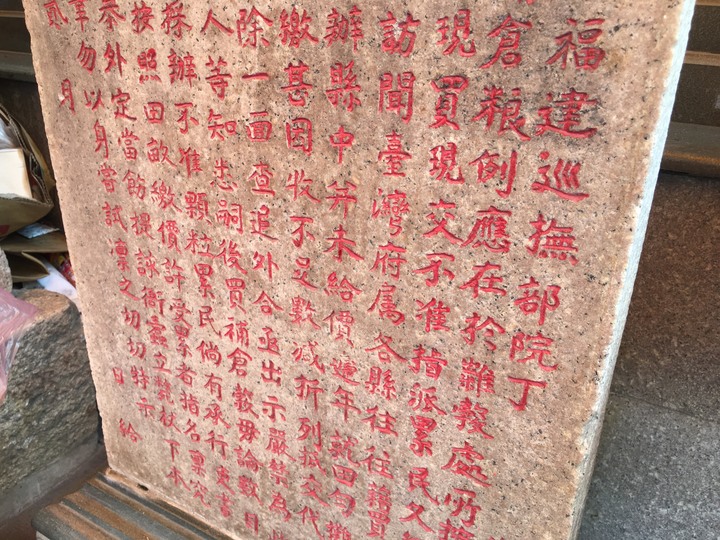 福建巡撫部院丁
倉粮例應在於雜穀處所
現買現交不准指派累民又
訪聞臺灣府属各縣往往藉買
辦縣中并未給價逐年就田勻攤
繳甚因收不足數減折列抵交代
除一面查追外合亟出示嚴禁為
人等知悉嗣後買補倉穀毋論數目
採辦不准顆粒累民倘有承行
按照田畝繳價許受累者指名稟究
示外定當飭提該衙蠹立斃杖下
勿以身嘗試凛之切切特示
貳 月 日 給